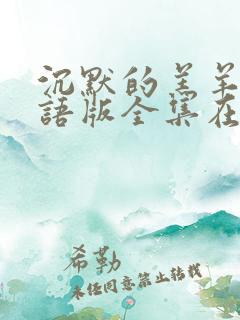 沉默的羔羊
語版全集在
希勒
未任同意禁止转载